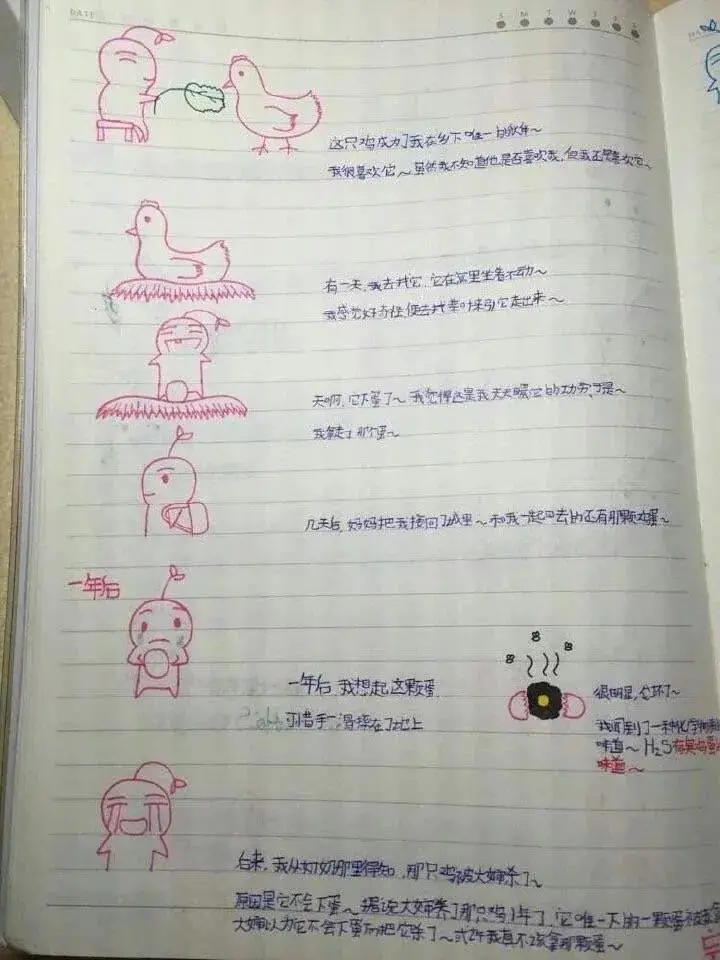 DATE
S M T W T F S
这只鸡成为了我在乡下唯一的伙伴~
我很喜欢它~虽然我不知道他是否喜欢我,但我还是喜欢它~
有一天,我去找它,它在窝里坐着不动~
我感觉好奇怪便去找菜叶来引它走出来~
天啊,它下蛋了~我觉得这是我天天喂它的功劳,于是~
我拿走了那个蛋~
几天后,妈妈把我接回了城里~和我一起回去的还有那颗鸡蛋~
一年后
一年后,我想起这颗蛋,
可惜手一滑摔在了地上
很明显,它坏了~
我闻到了一种化学物
味道~H₂S有臭鸡蛋
味道~
后来,我从奶奶那里得知,那只鸡被大婶杀了~
原因是它不会下蛋~据说大婶养了那只鸡1年了,它唯一下的一颗蛋被
大婶以为它不会下蛋而把它杀了~或许我真不该拿那颗蛋~